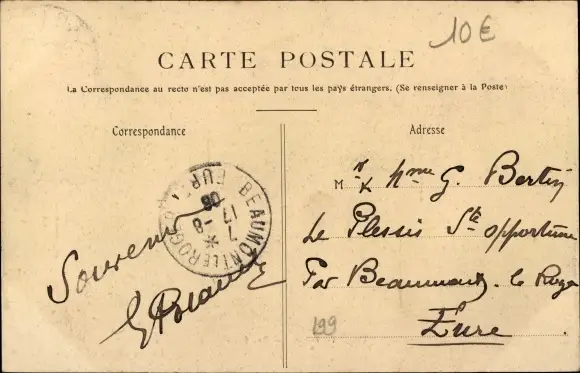 10€
CARTE POSTALE
La Correspondance au recto n'est pas acceptée par tous les pays étrangers. (Se renseigner à la Poste)
Correspondance
Adresse
Souvenir
BEAUMONT LE ROGER
EURE
7
17 -8
08
Mr & Mme G. Bertin
Le Plessis Ste opportune
Par Beaumont. le Roger
Eure
199